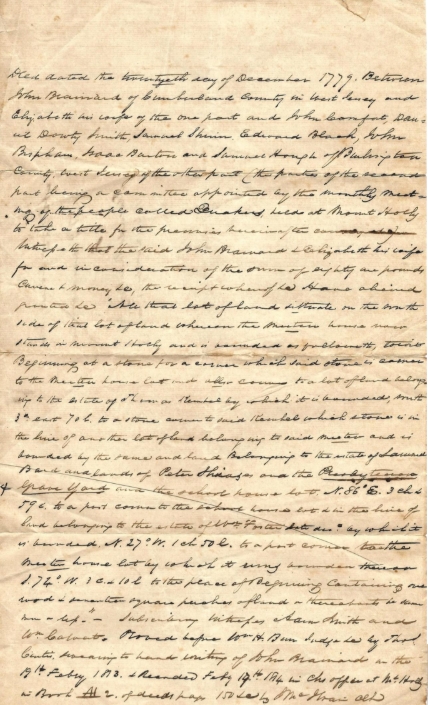 Deed dated the twentyeth day of December 1779. Between
John Brainard of Cumberland County in West Jersey and
Elizabeth his wife of the one part and John Comfort, Dan-
iel Doughty Smith, Samuel Shinn, Edward Black, John
Bispham, Isaac Barton and Samuel Hough of Burlington
County, West Jersey of the other part (the parties of the second
part being a committee appointed by the monthly meet-
ing of the people called Quakers, held at Mount Holly
to take a title for the premises hereinafter
Witnesseth that the said John Brainard & Elizabeth his wife
for and in consideration of the sum of eighty pounds
money &c, the receipt whereof &c Have aliened
granted &c All that lot of land situate on the north
side of the lot of land whereon the Meeting house now
stands in Mount Holly and is bounded as followeth, to wit
Beginning at a stone for a corner which said stone is corner
to the Meeting house lot and also corner to a lot of land belong-
ing to the estate of by which it is bounded, north
3° east 70 l. to a stone corner to said which stone is in
the line of another lot of land belonging to said meeting and is
bounded by the same and land Belonging to the estate of Samuel
Bard and lands of Peter Shiras and the Presbyterian
Grave Yard and the school house lot, N. 86° E. 3 ch &
59 l. to a post corner to the school house lot & in the line of
land belonging to the estate of Wm Foster by which it
is bounded N. 27° W. 1 ch 50 l. to a post corner to the
Meeting house lot by which it is bounded thence
S. 74° W. 3 c 10 l. to the place of Beginning Containing one
rood & seventeen square perches of land & thereabouts be same
more or less." - Subscribing Witnesses Smith and
Wm Calvert. Proved before Wm H. Burr Judge &c by
Curtis, swearing to hand writing of John Brainard on the
9th Feby 1813. & Recorded Feby 19th 1814 in Clks office at Mt Holly
in Book 2. of deeds page 150 &c by